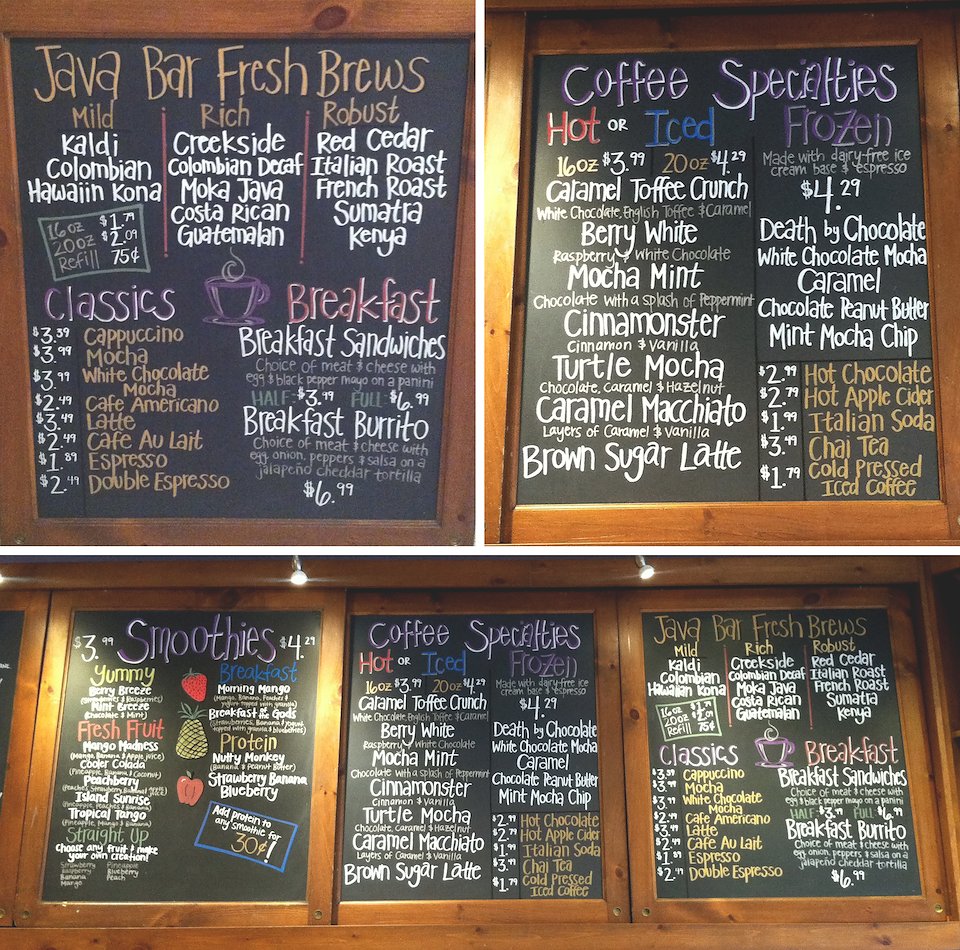 Java Bar Fresh Brews
Mild
Kaldi
Colombian
Hawaiin Kona
16oz $1.79
20oz $2.09
Refill 75¢
Rich
Creekside
Colombian Decaf
Moka Java
Costa Rican
Guatemalan
Robust
Red Cedar
Italian Roast
French Roast
Sumatra
Kenya
Classics
$3.39 Cappuccino
$3.99 Mocha
$3.99 White Chocolate
Mocha
$2.49 Cafe Americano
$3.49 Latte
$2.49 Cafe Au Lait
$1.89 Espresso
$2.49 Double Espresso
Breakfast
Breakfast Sandwiches
Choice of meat & cheese with
egg & black pepper mayo on a panini
HALF: $3.99 FULL: $6.99
Breakfast Burrito
Choice of meat & cheese with
egg, onion, peppers & salsa on a
jalapeño cheddar tortilla
$6.99
Coffee Specialties
Hot or Iced
16oz $3.99 20oz $4.29
Caramel Toffee Crunch
White Chocolate, English Toffee & Caramel
Berry White
Raspberry & White Chocolate
Mocha Mint
Chocolate with a splash of Peppermint
Cinnamonster
Cinnamon & Vanilla
Turtle Mocha
Chocolate, Caramel & Hazelnut
Caramel Macchiato
Layers of Caramel & Vanilla
Brown Sugar Latte
Frozen
Made with dairy-free ice
cream base & espresso
$4.29
Death by Chocolate
White Chocolate Mocha
Caramel
Chocolate Peanut Butter
Mint Mocha Chip
$2.99 Hot Chocolate
$2.79 Hot Apple Cider
$1.99 Italian Soda
$3.49 Chai Tea
$1.79 Cold Pressed
Iced Coffee
$3.99 Smoothies $4.29
Yummy
Berry Breeze
(Raspberries & Blueberries)
Mint Breeze
(Chocolate & Mint)
Fresh Fruit
Mango Madness
(Mango, Banana & Apple juice)
Cooler Colada
(Pineapple, Banana & Coconut)
Peachberry
(Peaches, Strawberry, Banana)
Island Sunrise
(Pineapple, Peaches & Banana)
Tropical Tango
(Pineapple, Mango & Banana)
Straight Up
Choose any fruit & make
your own creation!
Strawberry Pineapple
Raspberry Blueberry
Banana Peach
Mango
Breakfast
Morning Mango
(Mango, Banana, Peaches &
yogurt topped with granola)
Breakfast of the Gods
(Strawberries, Banana & yogurt
topped with granola & blueberries)
Protein
Nutty Monkey
(Banana & Peanut Butter)
Strawberry Banana
Blueberry
Add protein to
any Smoothie for
30¢!
Coffee Specialties
Hot or Iced
16oz $3.99 20oz $4.29
Caramel Toffee Crunch
White Chocolate, English Toffee & Caramel
Berry White
Raspberry & White Chocolate
Mocha Mint
Chocolate with a splash of Peppermint
Cinnamonster
Cinnamon & Vanilla
Turtle Mocha
Chocolate, Caramel & Hazelnut
Caramel Macchiato
Layers of Caramel & Vanilla
Brown Sugar Latte
Frozen
Made with dairy-free ice
cream base & espresso
$4.29
Death by Chocolate
White Chocolate Mocha
Caramel
Chocolate Peanut Butter
Mint Mocha Chip
$2.99 Hot Chocolate
$2.79 Hot Apple Cider
$1.99 Italian Soda
$3.49 Chai Tea
$1.79 Cold Pressed
Iced Coffee
Java Bar Fresh Brews
Mild
Kaldi
Colombian
Hawaiin Kona
16oz $1.79
20oz $2.09
Refill 75¢
Rich
Creekside
Colombian Decaf
Moka Java
Costa Rican
Guatemalan
Robust
Red Cedar
Italian Roast
French Roast
Sumatra
Kenya
Classics
$3.39 Cappuccino
$3.99 Mocha
$3.99 White Chocolate
Mocha
$2.49 Cafe Americano
$3.49 Latte
$2.49 Cafe Au Lait
$1.89 Espresso
$2.49 Double Espresso
Breakfast
Breakfast Sandwiches
Choice of meat & cheese with
egg & black pepper mayo on a panini
HALF: $3.99 FULL: $6.99
Breakfast Burrito
Choice of meat & cheese with
egg, onion, peppers & salsa on a
jalapeño cheddar tortilla
$6.99